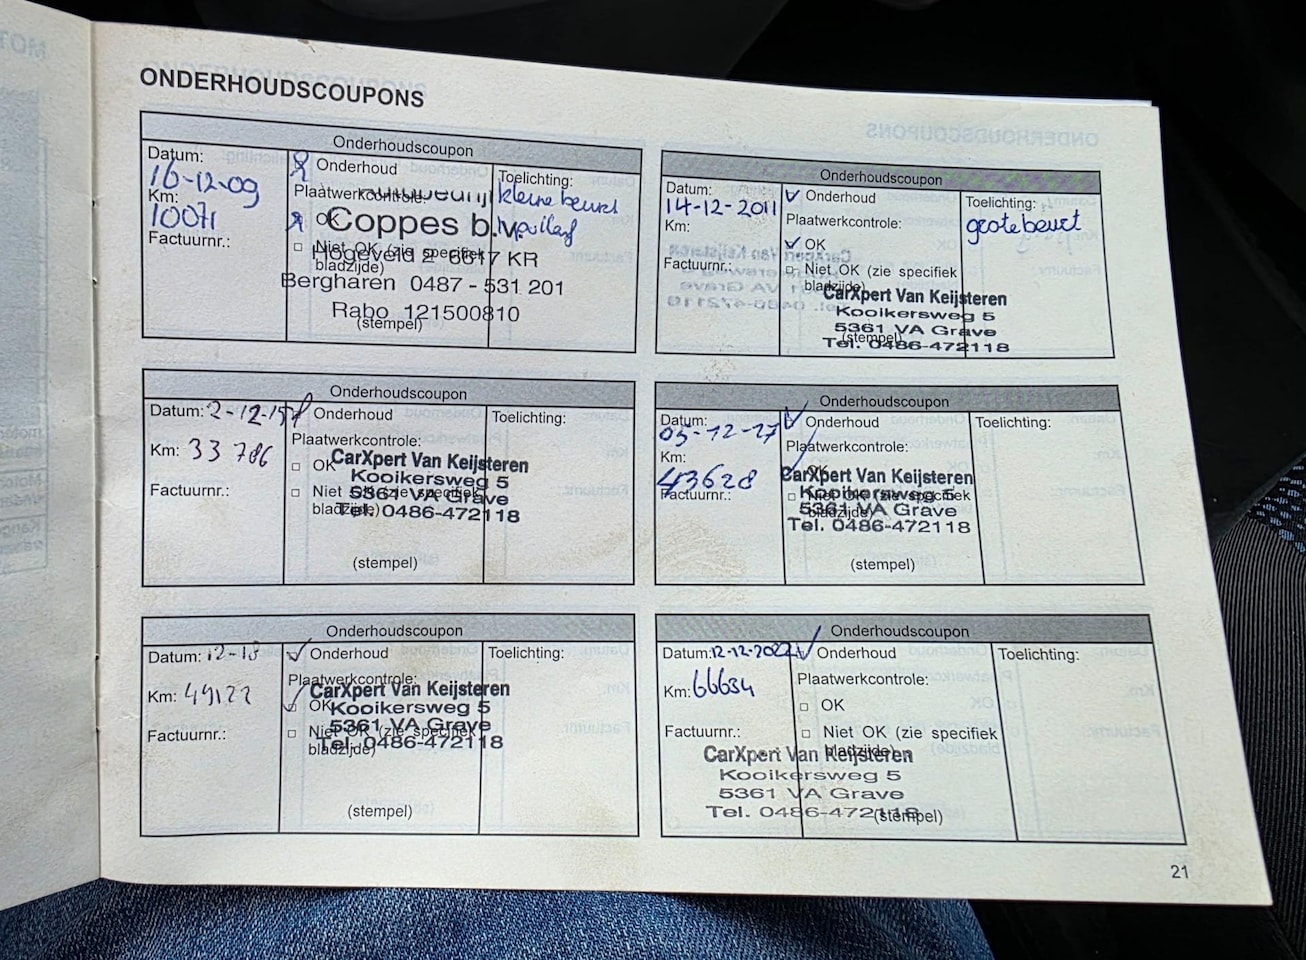 ONDERHOUDSCOUPONS
Onderhoudscoupon
Datum:
16-12-09
Km:
10071
Factuurnr.:
Onderhoud
Plaatwerkcontrole:
OK
Niet OK (zie specifiek
bladzijde)
Toelichting:
kleine beurt
Coppes b.v.
Hogeveld 2 6617 KR
Bergharen 0487 - 531 201
Rabo 121500810
(stempel)
Onderhoudscoupon
Datum:
14-12-2011
Km:
Factuurnr.:
Onderhoud
Plaatwerkcontrole:
OK
Niet OK (zie specifiek
bladzijde)
Toelichting:
grote beurt
CarXpert Van Keijsteren
Kooikersweg 5
5361 VA Grave
Tel. 0486-472118
(stempel)
Onderhoudscoupon
Datum: 2-12-15
Km: 33 786
Factuurnr.:
Onderhoud
Plaatwerkcontrole:
OK
Niet OK (zie specifiek
bladzijde)
Toelichting:
CarXpert Van Keijsteren
Kooikersweg 5
5361 VA Grave
Tel. 0486-472118
(stempel)
Onderhoudscoupon
Datum:
Km:
43628
Factuurnr.:
Onderhoud
Plaatwerkcontrole:
OK
Niet OK (zie specifiek
bladzijde)
Toelichting:
CarXpert Van Keijsteren
Kooikersweg 5
5361 VA Grave
Tel. 0486-472118
(stempel)
Onderhoudscoupon
Datum: 12-18
Km: 49122
Factuurnr.:
Onderhoud
Plaatwerkcontrole:
OK
Niet OK (zie specifiek
bladzijde)
Toelichting:
CarXpert Van Keijsteren
Kooikersweg 5
5361 VA Grave
Tel. 0486-472118
(stempel)
Onderhoudscoupon
Datum: 12-12-2022
Km: 66634
Factuurnr.:
Onderhoud
Plaatwerkcontrole:
OK
Niet OK (zie specifiek
bladzijde)
Toelichting:
CarXpert Van Keijsteren
Kooikersweg 5
5361 VA Grave
Tel. 0486-472118
(stempel)
21